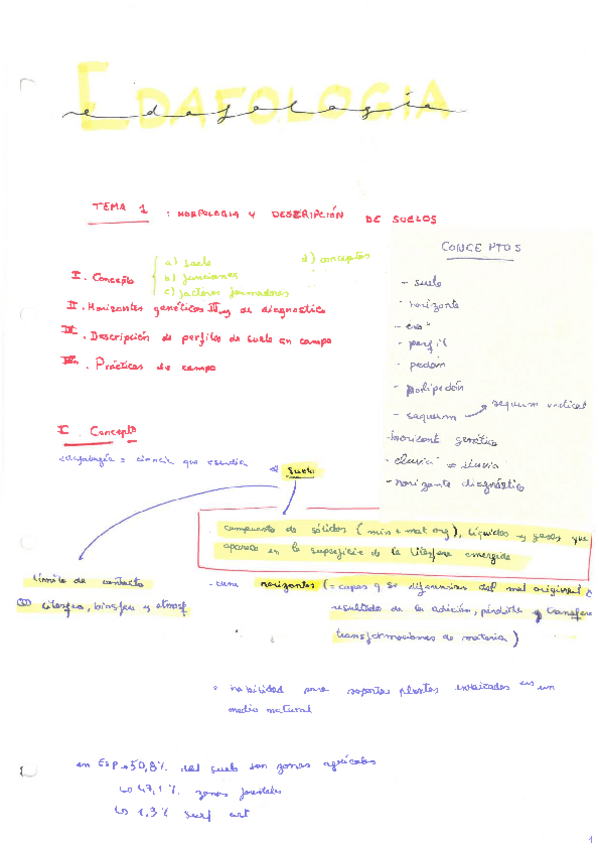 EDAFOLOGIA
edafologia
TEMA 1 : MORFOLOGIA Y DESCRIPCIÓN DE SUELOS
CONCEPTOS
I. Concepto
a) suelo
b) funciones
c) factores formadores
d) conceptos
II. Horizontes genéticos y de diagnostico
. Descripción de perfiles de suelo en campo
. Prácticas de campo
- suelo
- horizonte
- perfil
- pedón
- polipedón
- sequum → sequum vertical
- horizonte genético
- eluvia iluvia
- horizonte diagnóstico
I. Concepto
edafología = ciencia que estudia el suelo
compuesto de sólidos (min + mat org), líquidos y gases que
aparece en la superficie de la litosfera emergida
límite de contacto
litosfera, biosfera y atmosf
- tiene horizontes (= capas q se diferencian del mat original
resultado de la adición, pérdida, y transfere
transformaciones de materia)
habilidad para soportar plantas enraizadas en un
medio natural
en ESP → 50,8% del suelo son zonas agrícolas
↳ 47,1% zonas forestales
↳ 1,3% surf art
1